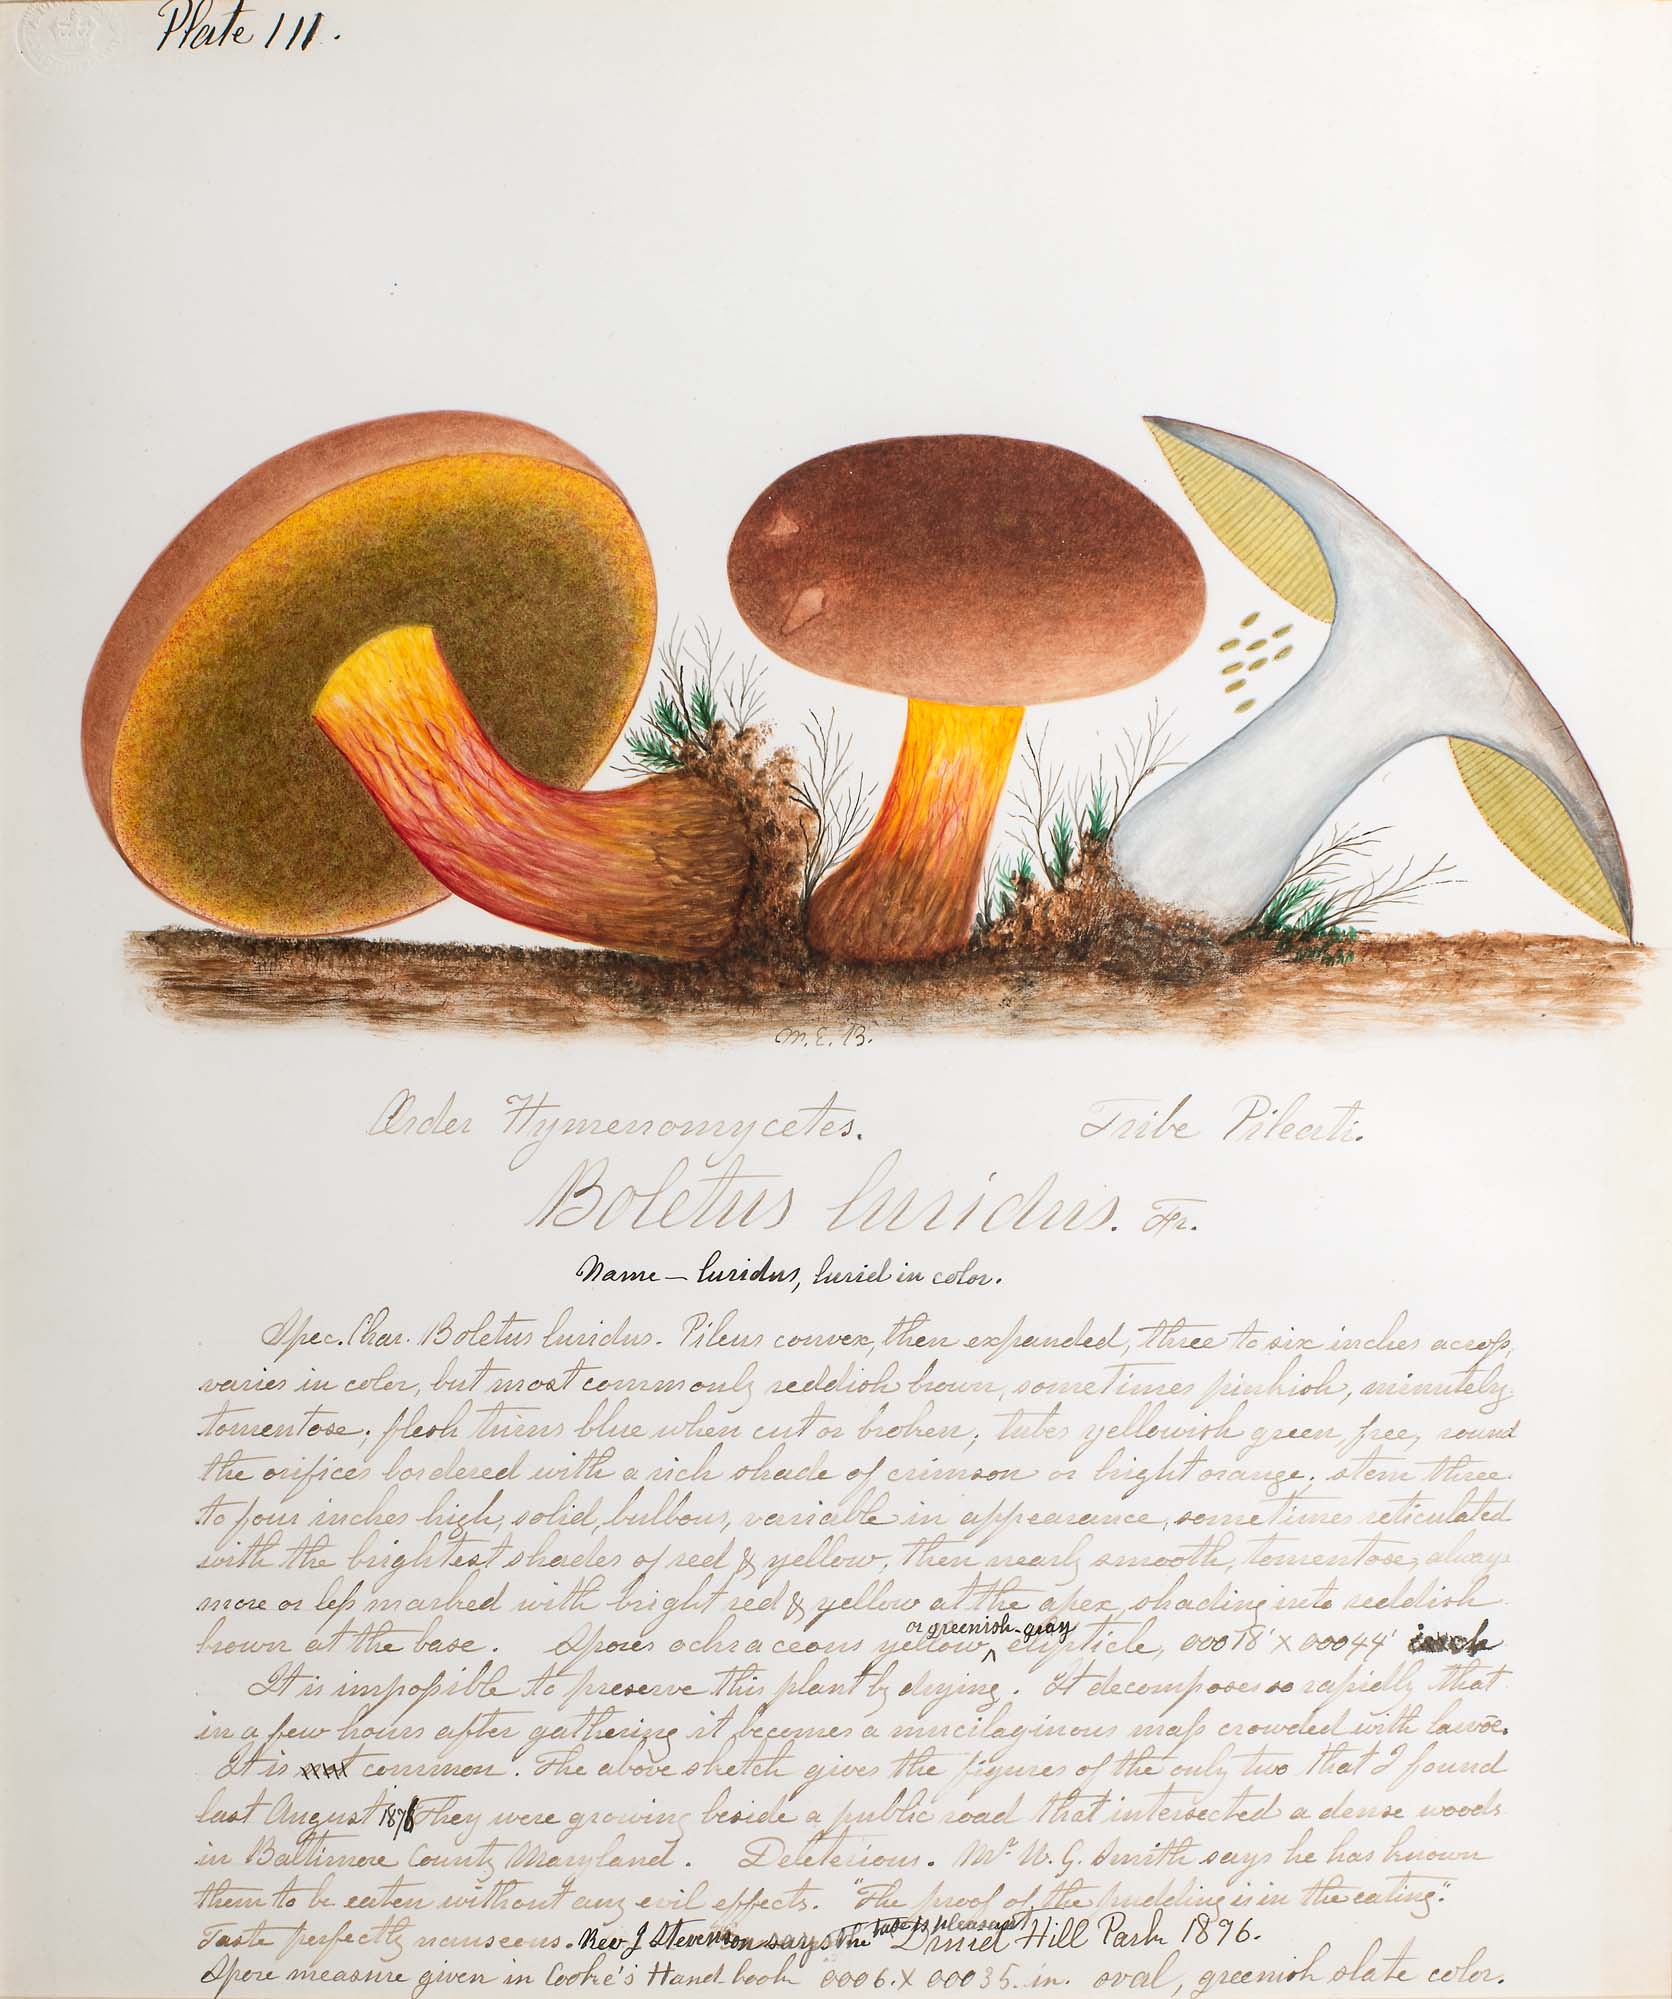 Plate III.
M. E. B.
Order Hymenomycetes. Tribe Pileati.
Boletus luridus. Fr.
Name – luridus, lurid in color.
Spec. Char. Boletus luridus. Pileus convex, then expanded, three to six inches across,
varies in color, but most commonly reddish brown, sometimes pinkish, minutely
tomentose; flesh turns blue when cut or broken; tubes yellowish green, free, round
the orifices bordered with a rich shade of crimson or bright orange; stem three
to four inches high, solid, bulbous, variable in appearance, sometimes reticulated
with the brightest shades of red & yellow, then nearly smooth, tomentose, always
more or less marked with bright red & yellow at the apex, shading into reddish
or greenish-gray
brown at the base. Spores ochraceous yellow, ‸ elipticle, 00078' × 00044' inch
It is impossible to preserve this plant by drying. It decomposes so rapidly that
in a few hours after gathering it becomes a mucilaginous mass crowded with larvæ.
It is not common. The above sketch gives the figures of the only two that I found
last August 1876 They were growing beside a public road that intersected a dense woods
in Baltimore County Maryland. Deleterious. Mr. W. G. Smith says he has known
them to be eaten without any evil effects. "The proof of the pudding is in the eating".
Taste perfectly nauseous. Rev J Stevenson says the taste is pleasant Druid Hill Park 1896.
Spore measure given in Cooke's Hand book 0006. × 00035. in. oval, greenish slate color.